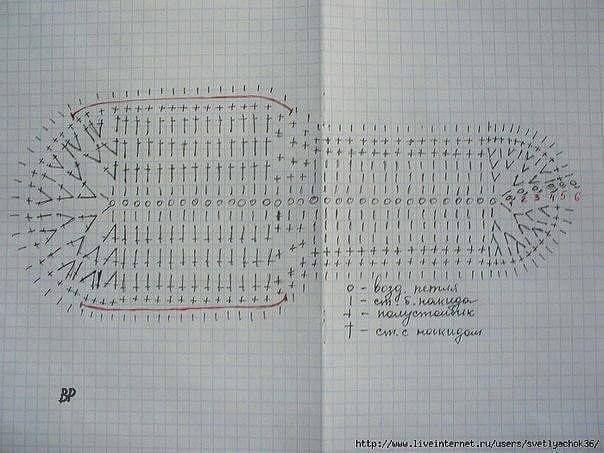 1 2 3 4 5 6
о - возд. петля
| - ст. б. накида
+ - полустолбик
† - ст. с накидом
ВР
http://www.liveinternet.ru/users/svetlyachok36/